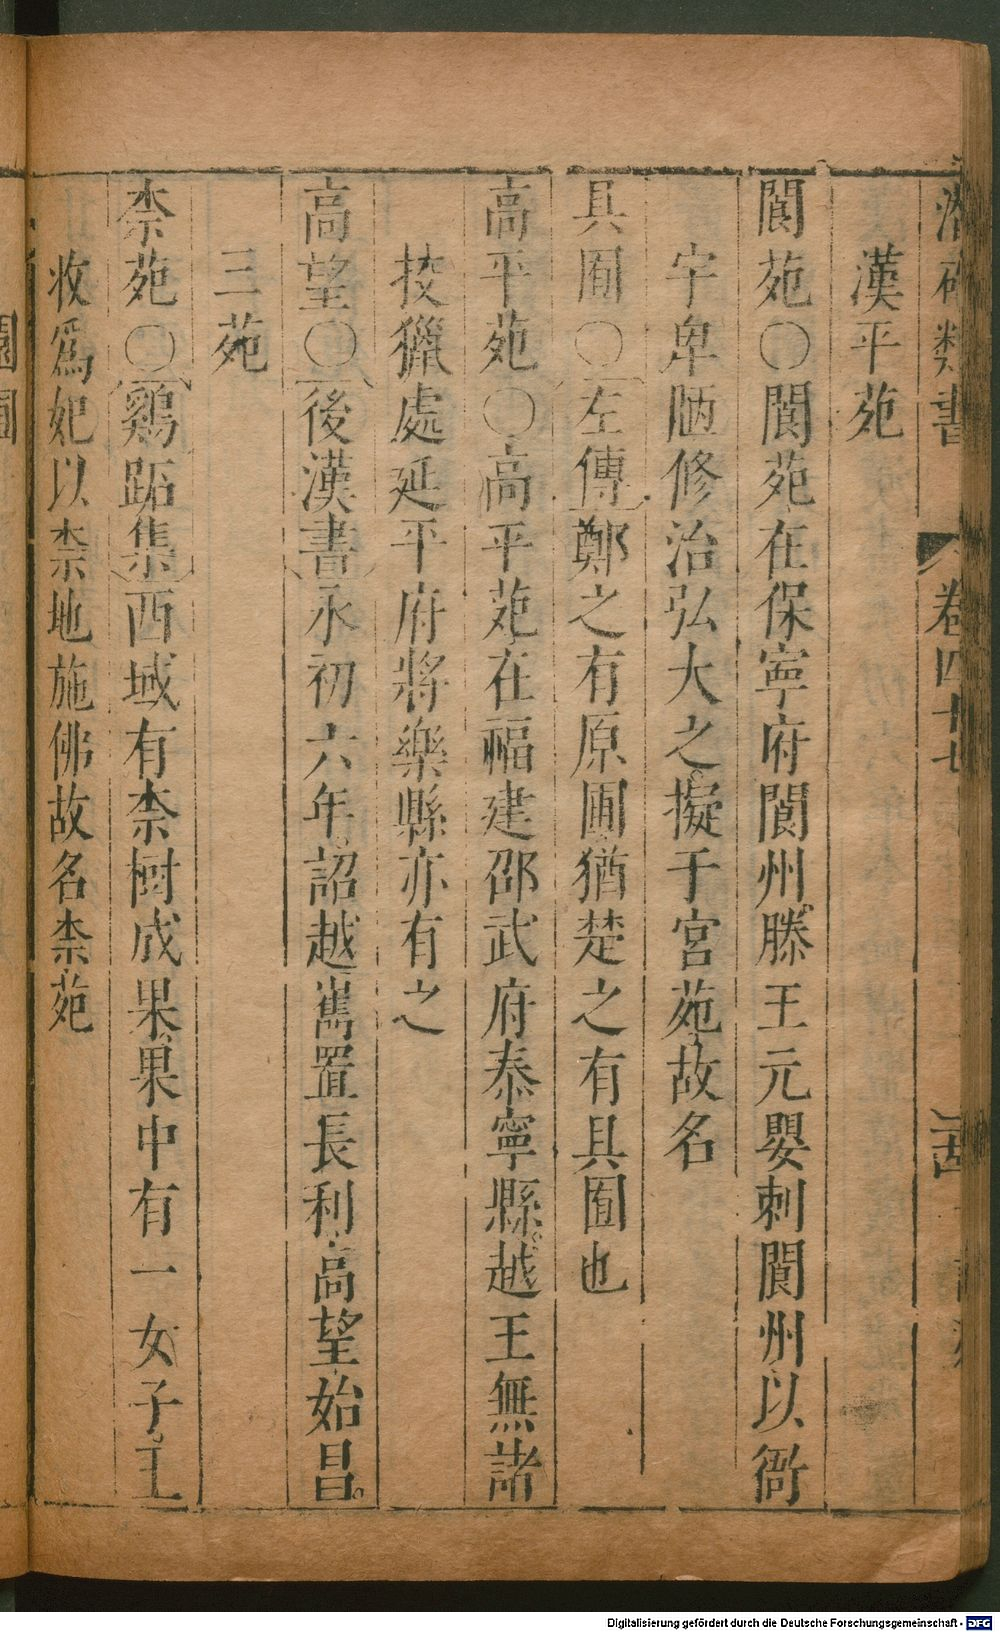 潛確類書 卷四十七
漢平苑
閬苑○閬苑在保寧府閬州滕王元嬰刺閬州以衙
宇卑陋修治弘大之擬于宮苑故名
具囿○左傳鄭之有原圃猶楚之有具囿也
高平苑○高平苑在福建邵武府泰寧縣越王無諸
挍獵處延平府將樂縣亦有之
高望○後漢書永初六年詔越嶲置長利高望始昌
三苑
柰苑○鷄跖集西域有柰樹成果果中有一女子王
收爲妃以柰地施佛故名柰苑
Digitalisierung gefördert durch die Deutsche Forschungsgemeinschaft - DFG